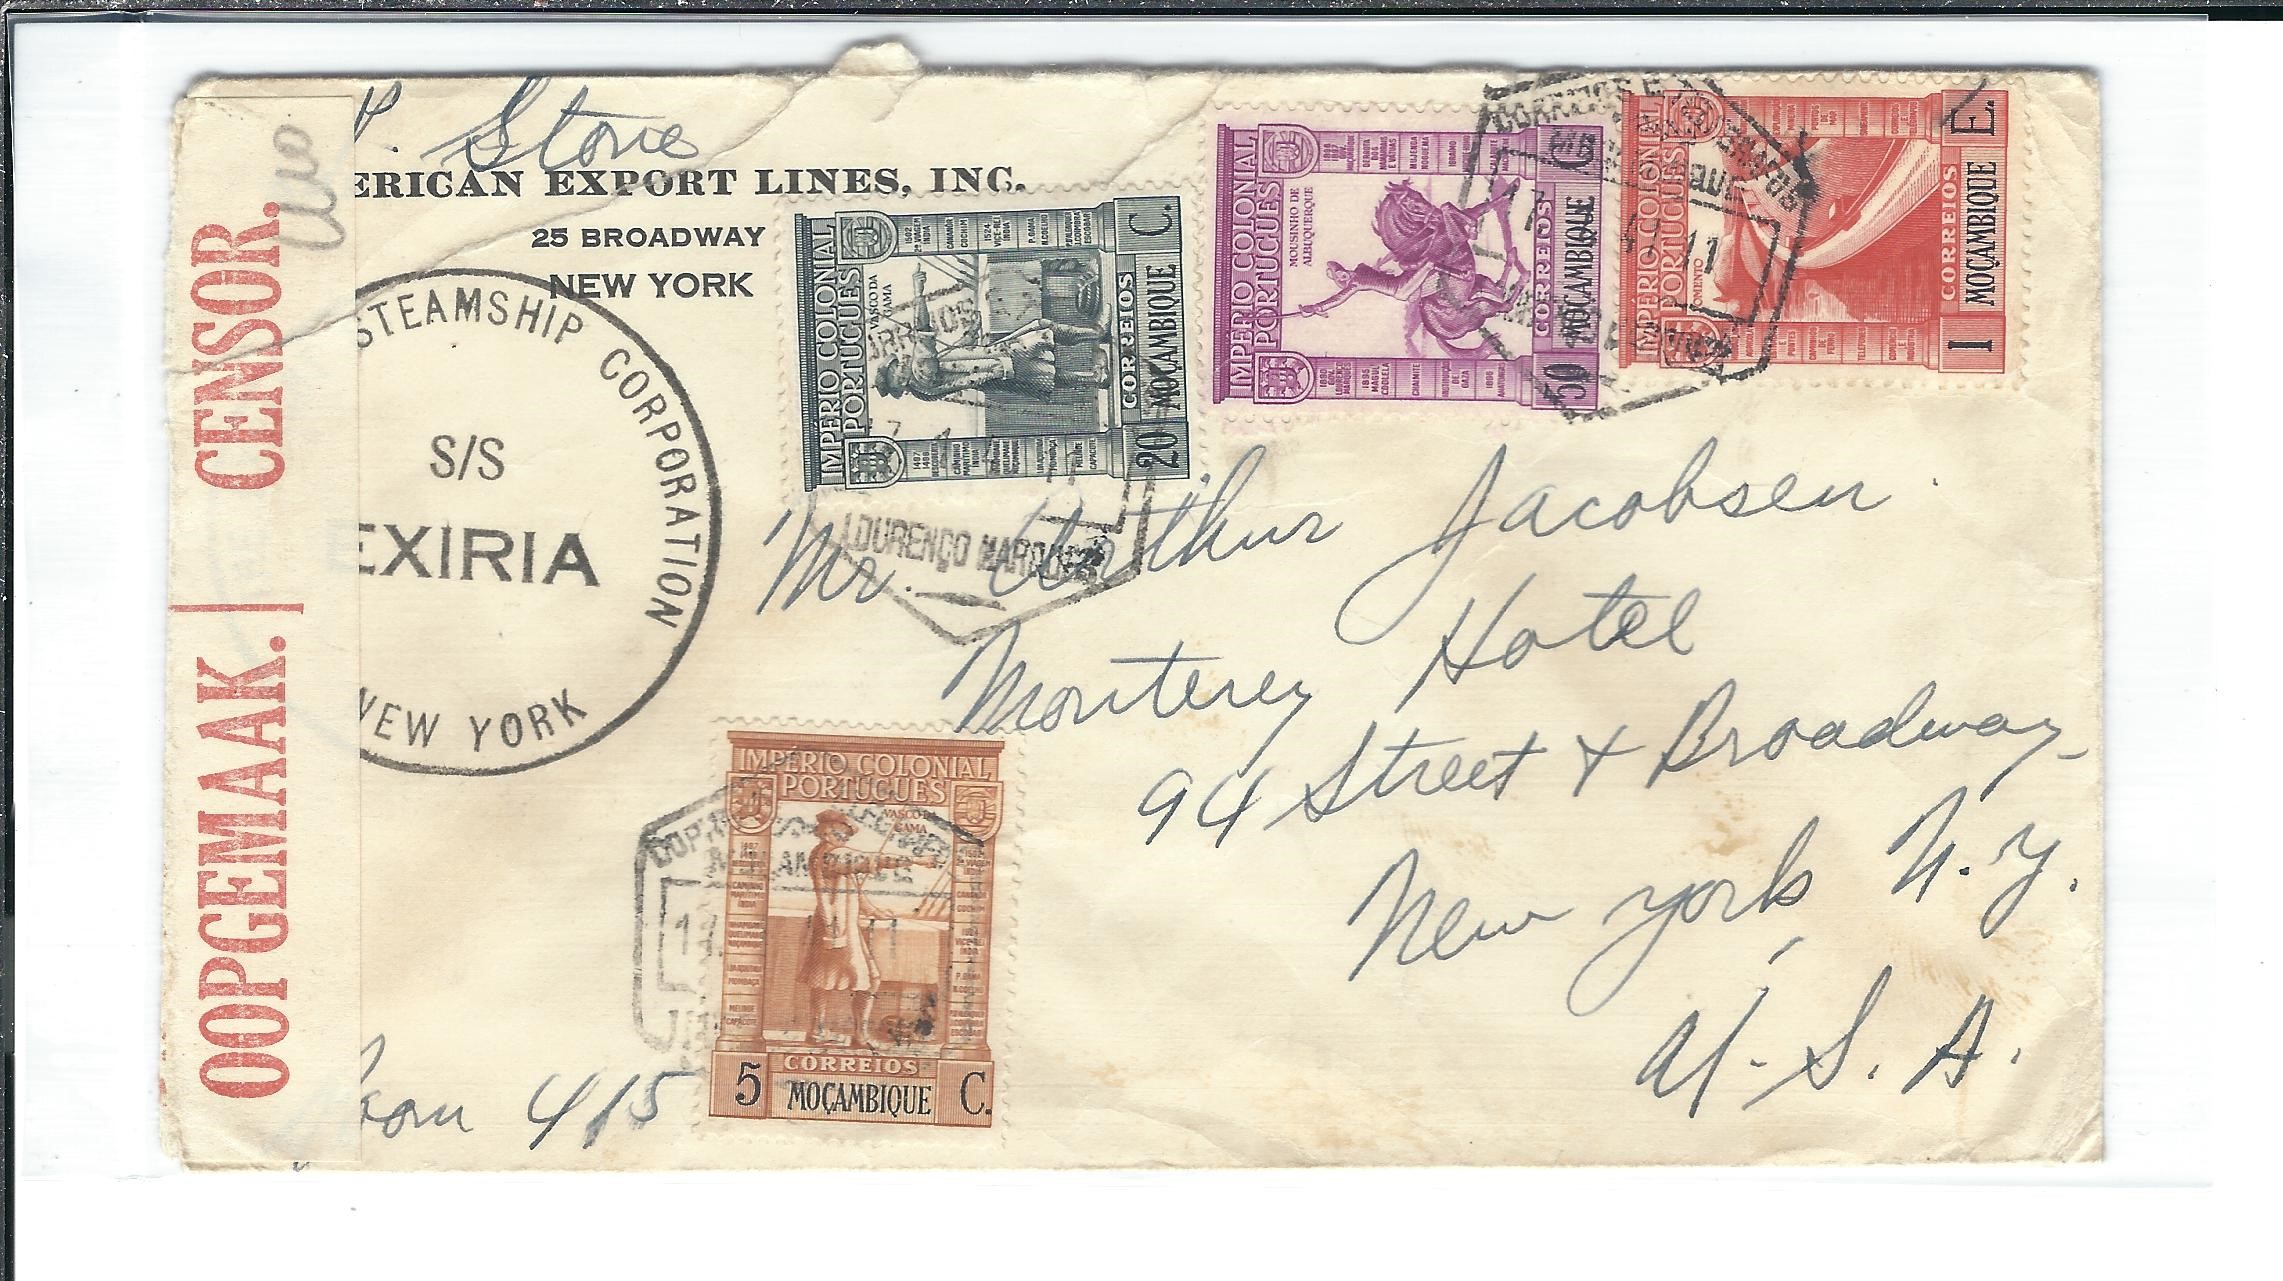 P. Stone
ERICAN EXPORT LINES, INC.
25 BROADWAY
NEW YORK
STEAMSHIP CORPORATION
S/S
EXIRIA
NEW YORK
OOPGEMAAK. | CENSOR.
IMPÉRIO COLONIAL
PORTUGUÊS
VASCO DA
GAMA
CORREIOS
20 MOÇAMBIQUE C.
LOURENÇO MARQUES
IMPÉRIO COLONIAL
PORTUGUÊS
MOUSINHO DE
ALBUQUERQUE
CORREIOS
50 MOÇAMBIQUE C.
IMPÉRIO COLONIAL
PORTUGUÊS
FOMENTO
CORREIOS
1 MOÇAMBIQUE E.
Mr. Arthur Jacobsen
Monterey Hotel
94 Street & Broadway
New York, N.Y.
U.S.A.
IMPÉRIO COLONIAL
PORTUGUÊS
VASCO DA
GAMA
CORREIOS
5 MOÇAMBIQUE C.
Room 415